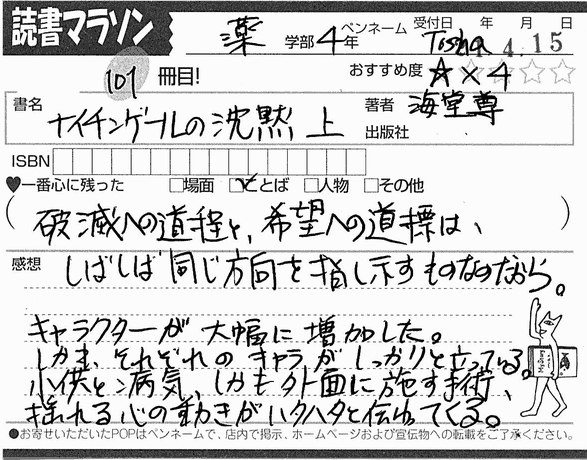 読書マラソン
薬 学部 4年 ペンネーム Tosha 受付日 年 月 日 4.15
101 冊目! おすすめ度 ☆×4
書名 ナイチンゲールの沈黙 上 著者 海堂尊
出版社
ISBN
♥一番心に残った □場面 ☑ことば □人物 □その他
(破滅への道程と、希望への道標は、)
感想 しばしば同じ方向を指し示すものなのだから。
キャラクターが大幅に増加した。
しかも、それぞれのキャラがしっかりと立っている。
小供と病気、しかも外面に施す手術、
揺れる心の動きがハタハタと伝わってくる。
●お寄せいただいたPOPはペンネームで、店内で掲示、ホームページおよび宣伝物への転載をご了承ください。